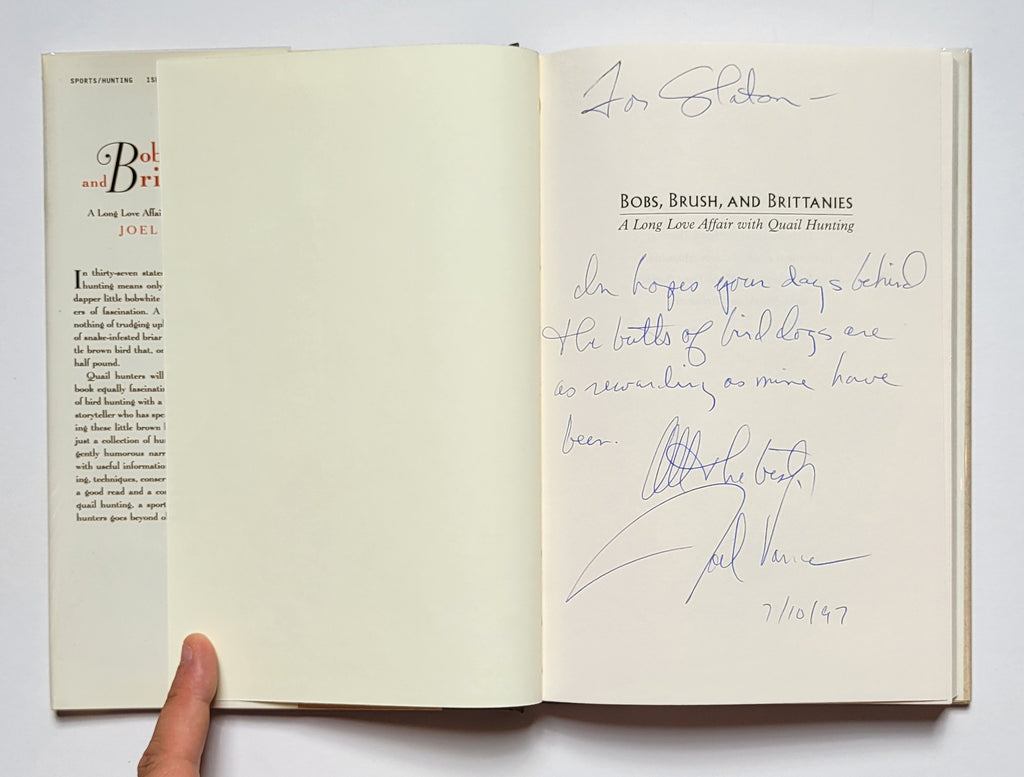 SPORTS/HUNTING
Bob
and Bri
A Long Love Affai
JOEL
In thirty-seven state
hunting means only
dapper little bobwhite
ers of fascination. A
nothing of trudging up
of snake-infested briar
tle brown bird that, o
half pound.
Quail hunters will
book equally fascinati
of bird hunting with a
storyteller who has spe
ing these little brown
just a collection of hu
gently humorous narr
with useful informatio
ing, techniques, conser
a good read and a co
quail hunting, a sport
hunters goes beyond o
For Slaton —
BOBS, BRUSH, AND BRITTANIES
A Long Love Affair with Quail Hunting
In hopes your days behind
the butts of bird dogs are
as rewarding as mine have
been.
All the best,
Joel Vance
7/10/97